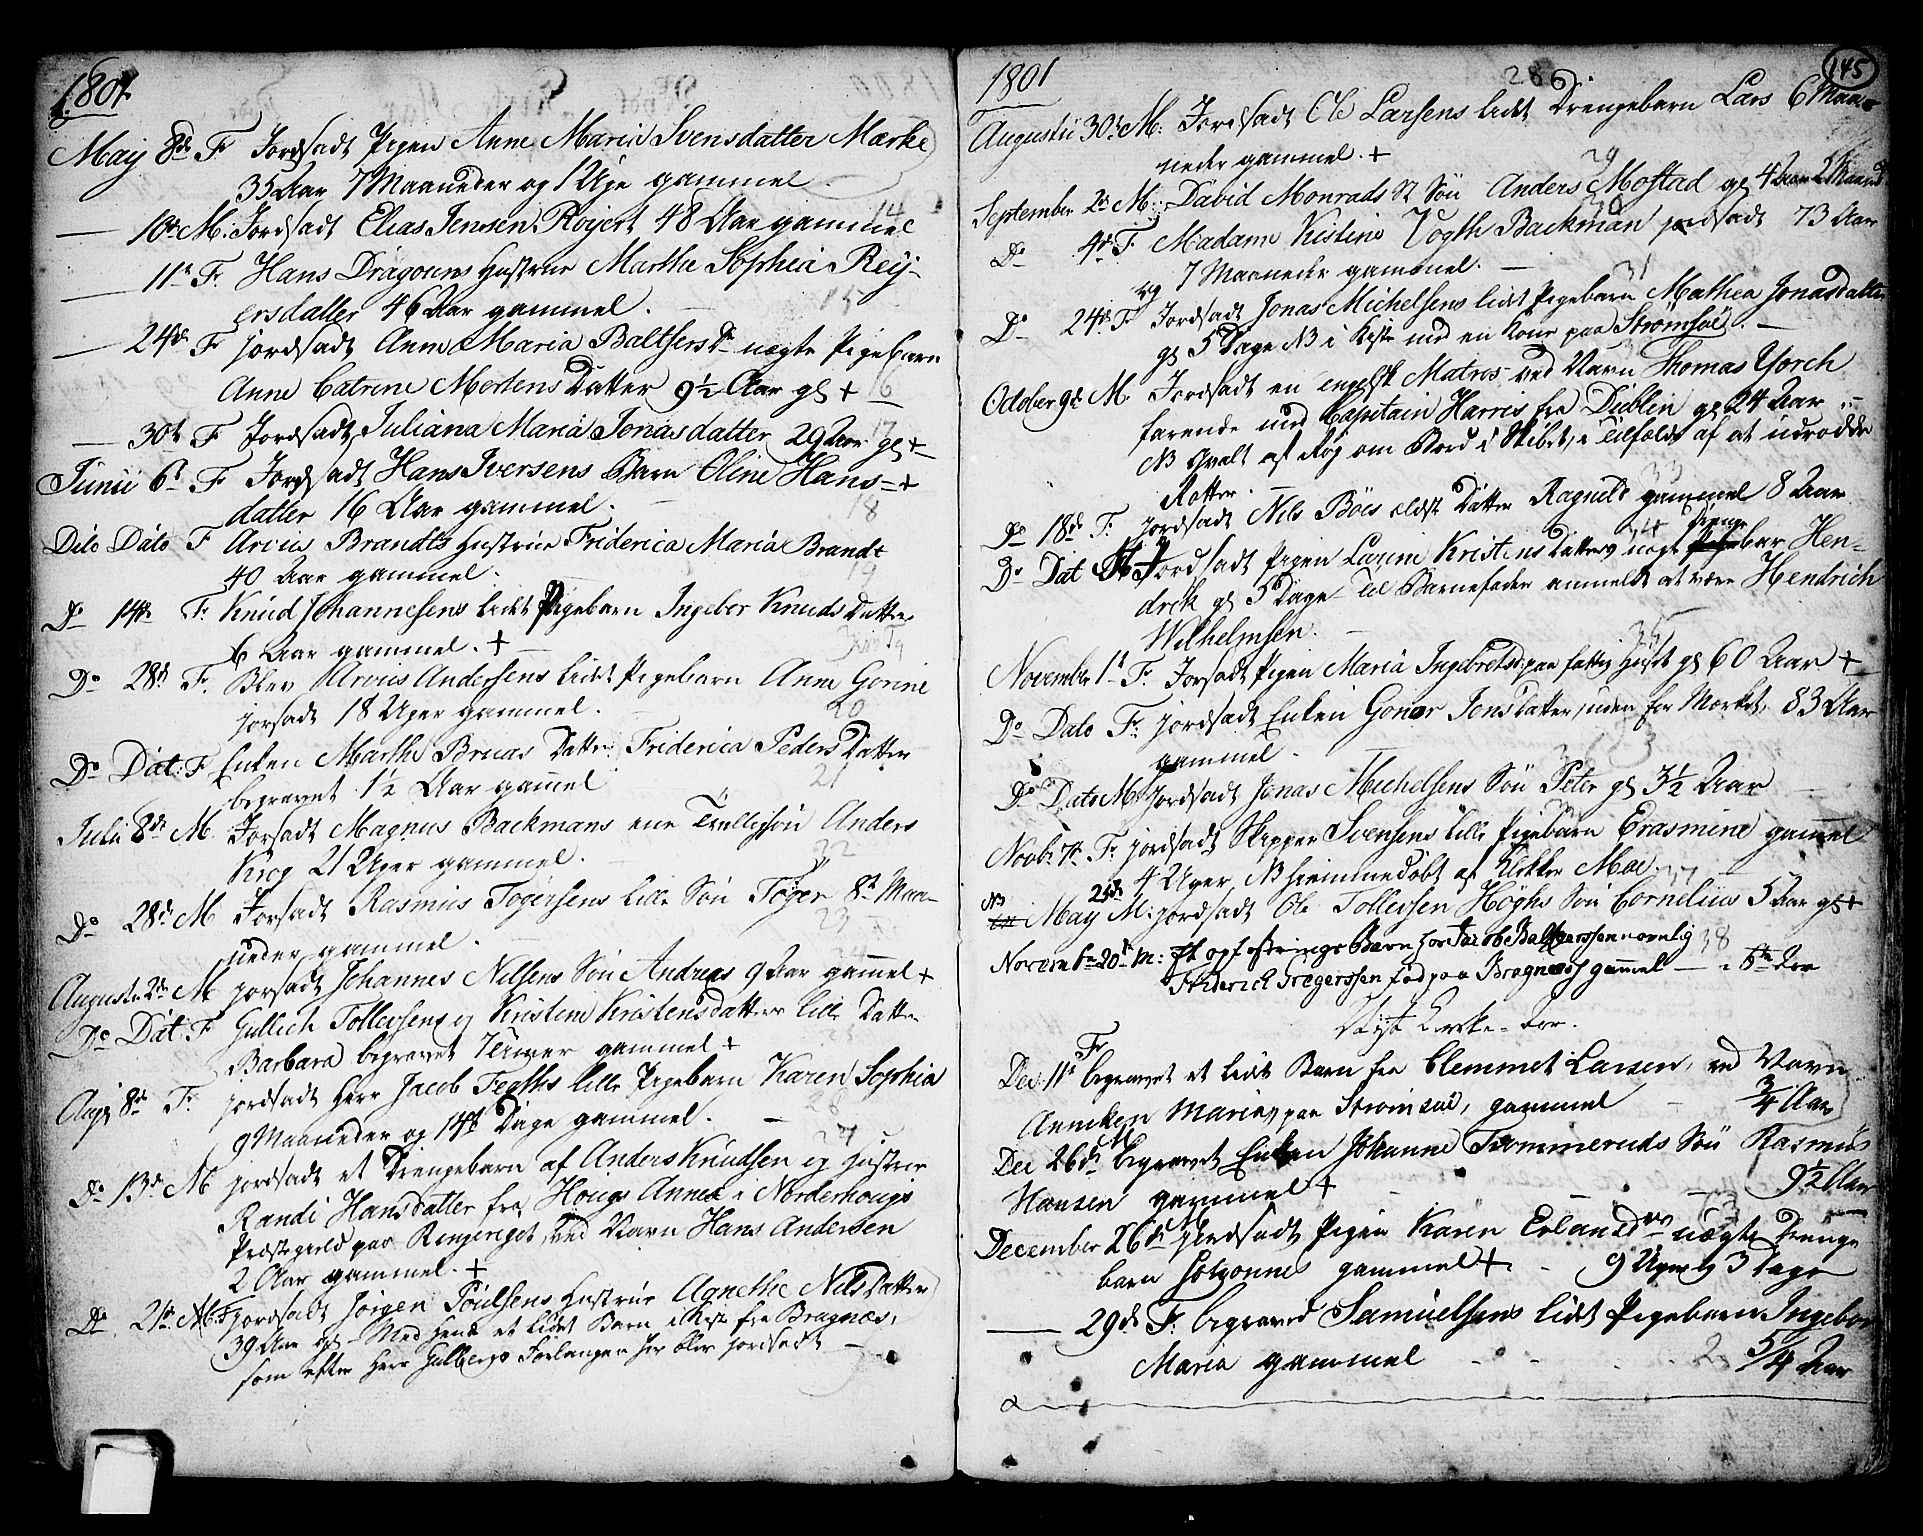 1801.
May 8de F Jordsadt Pigen Anne Maria Svensdatter Mærke
35 Aar 7 Maaneder og 1 Uge gammel.
— 10de M. Jordsadt Elias Jensen Röyert 48 Aar gammel
14
— 11te F. Hans Dragouns Hustrue Martha Sophia Rey-
ersdatter 46 Aar gammel.
15
— 24de F jordsadt Anne Maria Baltsers Dr uægte Pigebarn
Anne Catrine Mortens Datter 9½ Aar gl +
16
— 30te F Jordsadt Juliana Maria Jonasdatter 29 Aar gl +
17
Junii 6te F Jordsadt Hans Iversens Barn Oline Hans= +
datter 16 Aar gammel.
18
Dito Dato F Arvis Brandts Hustrue Friderica Maria Brandt
40 Aar gammel.
19
Do 14de F. Knud Johannesens lidet Pigebarn Ingebor Knuds Datter
6 Aar gammel. +
Do 28de F. Blev Arvis Andersens lidet Pigebarn Anne Gorine
jorsadt 18 Uger gammel.
20
Do Dat: F Enken Marthe Bruas Datter Friderica Peders Datter
begravet 1½ Aar gamel
21
Julii 8de M Jorsadt Magnus Backmans ene Tvilligsön Anders
Krog 21 Uger gammel.
22
Do 28de M Jorsadt Rasmus Togersens lille Sön Töger 8te Maa-
neder gammel.
23
Augusti 2den M jorsadt Johannes Nilsens Sön Andreas 9 Aar gammel +
Do Dat: F Gullich Tollevsens og Kristine Kristensdatters lille Datter
Barbara begravet 7 Uger gammel +
Augs 8de F. jordsadt Herr Jacob Fegths lille Pigebarn Karen Sophia
9 Maaneder og 14 Dage gammel.
26
Do 13de M jordsadt et Drengebarn af Anders Knudsen og Hustrue
27
Randi Hansdatter fra Hougs Annex i Norderhougs
Præstegield paa Ringeriget, ved Navn Hans Andersen
2 Aar gammel. +
Do 21de M. F jordsadt Jörgen Poulsens Hustrue Agnethe Nils Datter
39 Aar gl — Med hende et lidet Barn i Kiste fra Bragnæs,
som efter Herr Gulbergs Forlangen her blev jordsadt —
1801
145
28
Augustii 30te M: Jordsadt Ole Larsens lidet Drengebarn Lars 6 Maa=
neder gammel. +
29
September 2de M: David Monrads Sön Anders Mostad gl 4 Aar 2 Maaned
30
Do 4de F. Madame Kistine Vogth Backman jordsadt 73 Aar
og 7 Maaneder gammel. —
31
Do 24de F Jordsadt Jonas Michelsens lidet Pigebarn Mathea Jonasdatter
gl 5 Dage NB i Kiste med en Kone paa Strömsöe. —
October 9de M. Jordsadt en engelsk Matros ved Navn Thomas Yorch
farende med Capitain Harris fra Dublin gl 24 Aar
NB qvalt af Rög om Bord i Skibet, i Tilfælde af at udrodde
Rotter. —
33
Do 18de F. jordsadt Nils Böes ældste Datter Ragnild gammel 8 Aar
34
Do Dat M Jordsadt Pigen Larine Kristens Datters uægte Drenge bar Hen=
drik gl 5 Dage Til Barnefader anmeldt at være Hendrich
Wilhelmsen. —
35
November 1te F. Jorsadt Pigen Maria Ingebretsd: paa fattig Huset gl 60 Aar +
Do Dato F. jordsadt Enken Gonor Jens Datter, uden for Mærket, 83 Aar
gammel.
36
Do Dato M. jordsadt Jonas Michelsens Sön Peter gl 3½ Aar —
Novbr 7de F. jordsadt Skipper Svensens lille Pigebarn Erasmine gamel
4 Uger, NB hiemmedöbt af Klokker Moe.
37
NB May 25de M: jordsadt Ole Tollevsen Höghs Sön Cornelius 5 Aar gl +
Novemb: 20de M: Et opfostrings Barn hos Jacob Baltzerssen navnlig
38
Friderich Gregerssen föd paa Bragnes gammel — 8te Aar
Dec 11te F begravet et lidet Barn fra Clemmet Larsen, ved Navn
Anneken Maria, paa Strömsöe, gammel — ¾ Aar
Dec 26de M begravet Enken Johanne Trommeruds Sön Rasmus
Hansen gammel + — 9½ Aar
December 26de M Jordsadt Pigen Karen Erlands Drs uægte Drenge
barn gammel + — 9 Uger og 3 Dage
— 29de F. begraved Samuelsens lidet Pigebarn Ingebor
Maria gammel — 5/4 Aar